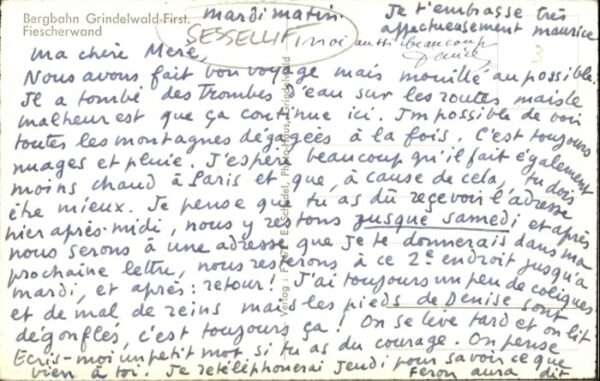 Bergbahn Grindelwald-First.
Fiescherwand
mardi matin.
SESSELLIFT
Je t'embrasse très
affectueusement maurice
moi aussi beaucoup
Denise
3
Ma chère Mère,
Nous avons fait bon voyage mais mouillé au possible.
Il a tombé des trombes d'eau sur les routes mais le
malheur est que ça continue ici. Impossible de voir
toutes les montagnes dégagées à la fois. C'est toujours
nuages et pluie. J'espère beaucoup qu'il fait également
moins chaud à Paris et que, à cause de cela, tu dois
être mieux. Je pense que tu as dû recevoir l'adresse
hier après-midi, nous y restons jusque samedi et après
nous serons à une adresse que je te donnerais dans ma
prochaine lettre, nous resterons à ce 2e endroit jusqu'à
mardi, et après : retour ! J'ai toujours un peu de coliques
et de mal de reins mais les pieds de Denise sont
dégonflés, c'est toujours ça ! On se lève tard et on lit
Ecris-moi un petit mot si tu as du courage. On pense
bien à toi. Je retéléphonerai jeudi pour savoir ce que
Feron aura dit
Verlag :